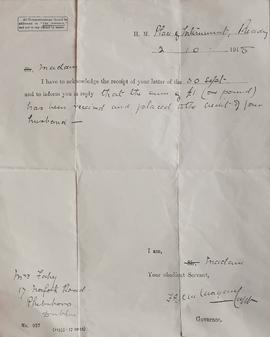 All Communications should be
addressed to "The Governor,"
and not to any Officer by name.
H. M. Place of Internment, Reading
2. 10. 191
Madam
I have to acknowledge the receipt of your letter of the 30 Sept
and to inform you in reply that the sum of £1 (one pound)
has been received and placed to the credit of your
husband —
I am,
Madam
Your obedient Servant,
Governor.
Mrs Fahy
17 Norfolk Road
Phibsboro
Dublin
No. 957